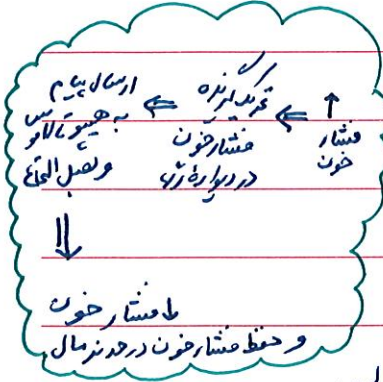 ↑ فشار خون ⇐ تحریک گیرنده فشار خون در دیواره رگ ⇐ ارسال پیام به هیپوتالاموس و بصل النخاع
⇓
↓ فشار خون
و حفظ فشار خون در حد نرمال